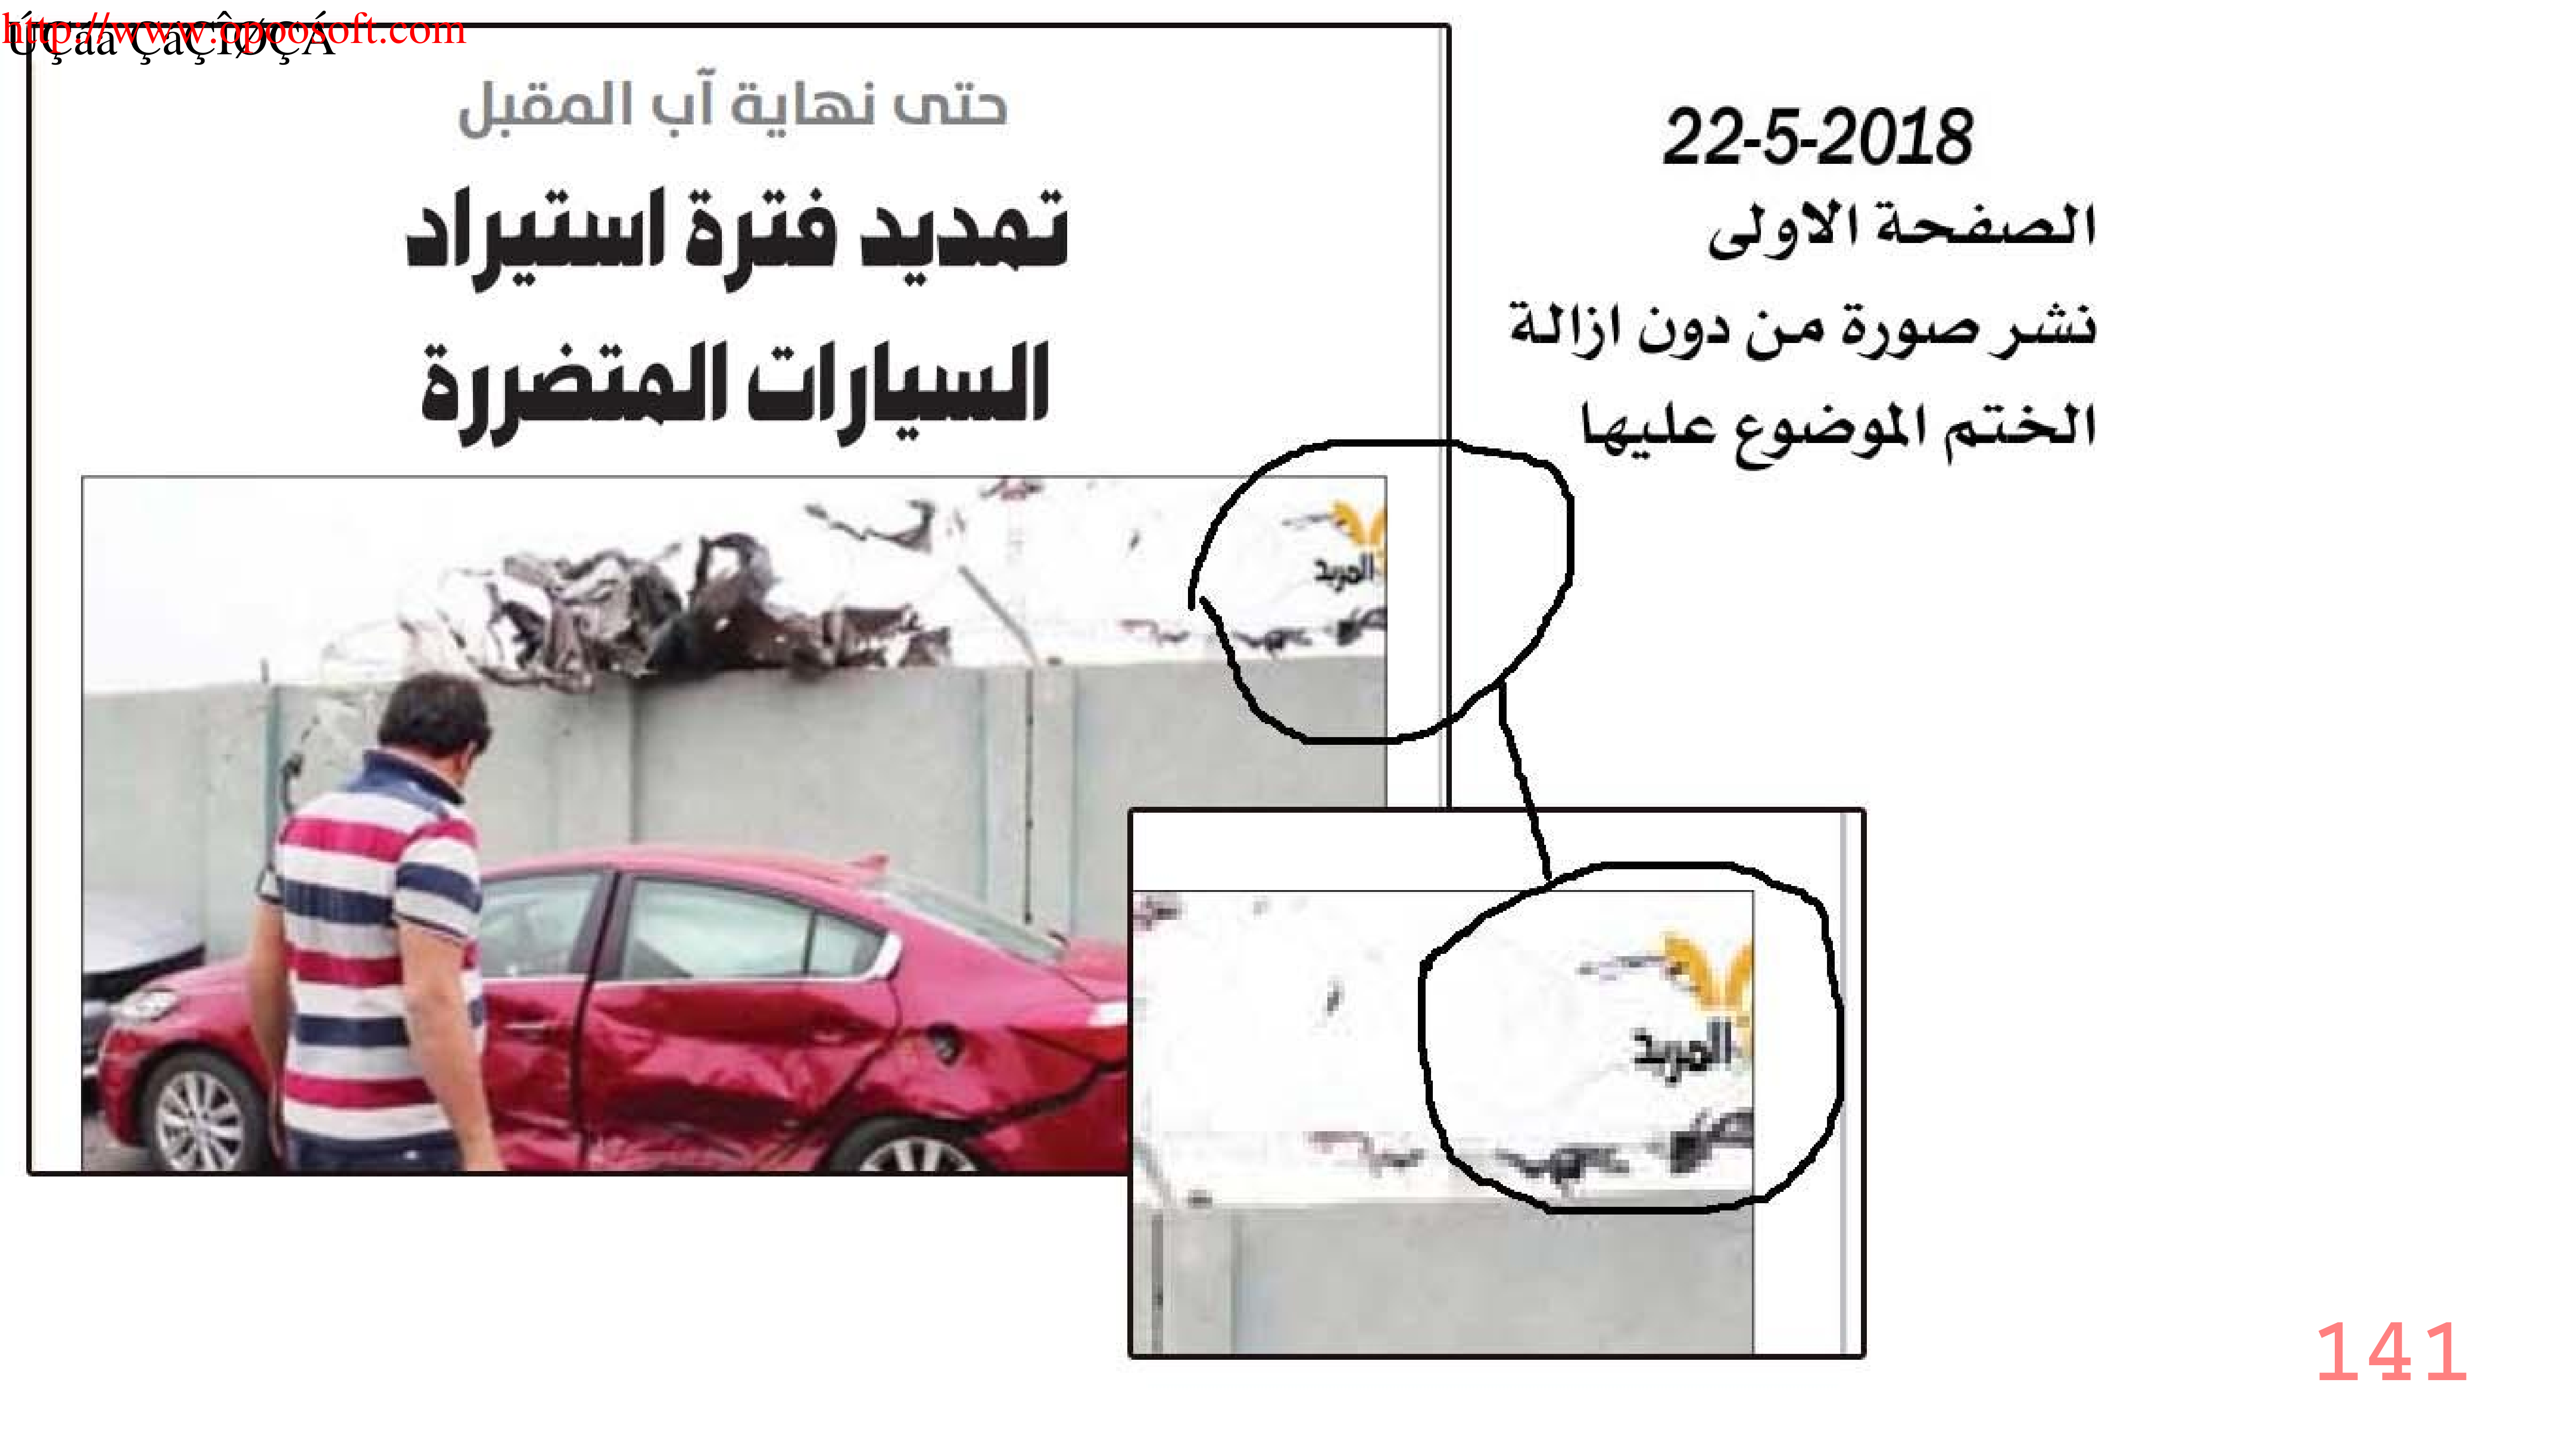 http://www.opoosoft.com
ÚÇáã ÇáÇÎØÇÁ
حتى نهاية آب المقبل
تمديد فترة استيراد
السيارات المتضررة
22-5-2018
الصفحة الاولى
نشر صورة من دون ازالة
الختم الموضوع عليها
المربد
المربد
141